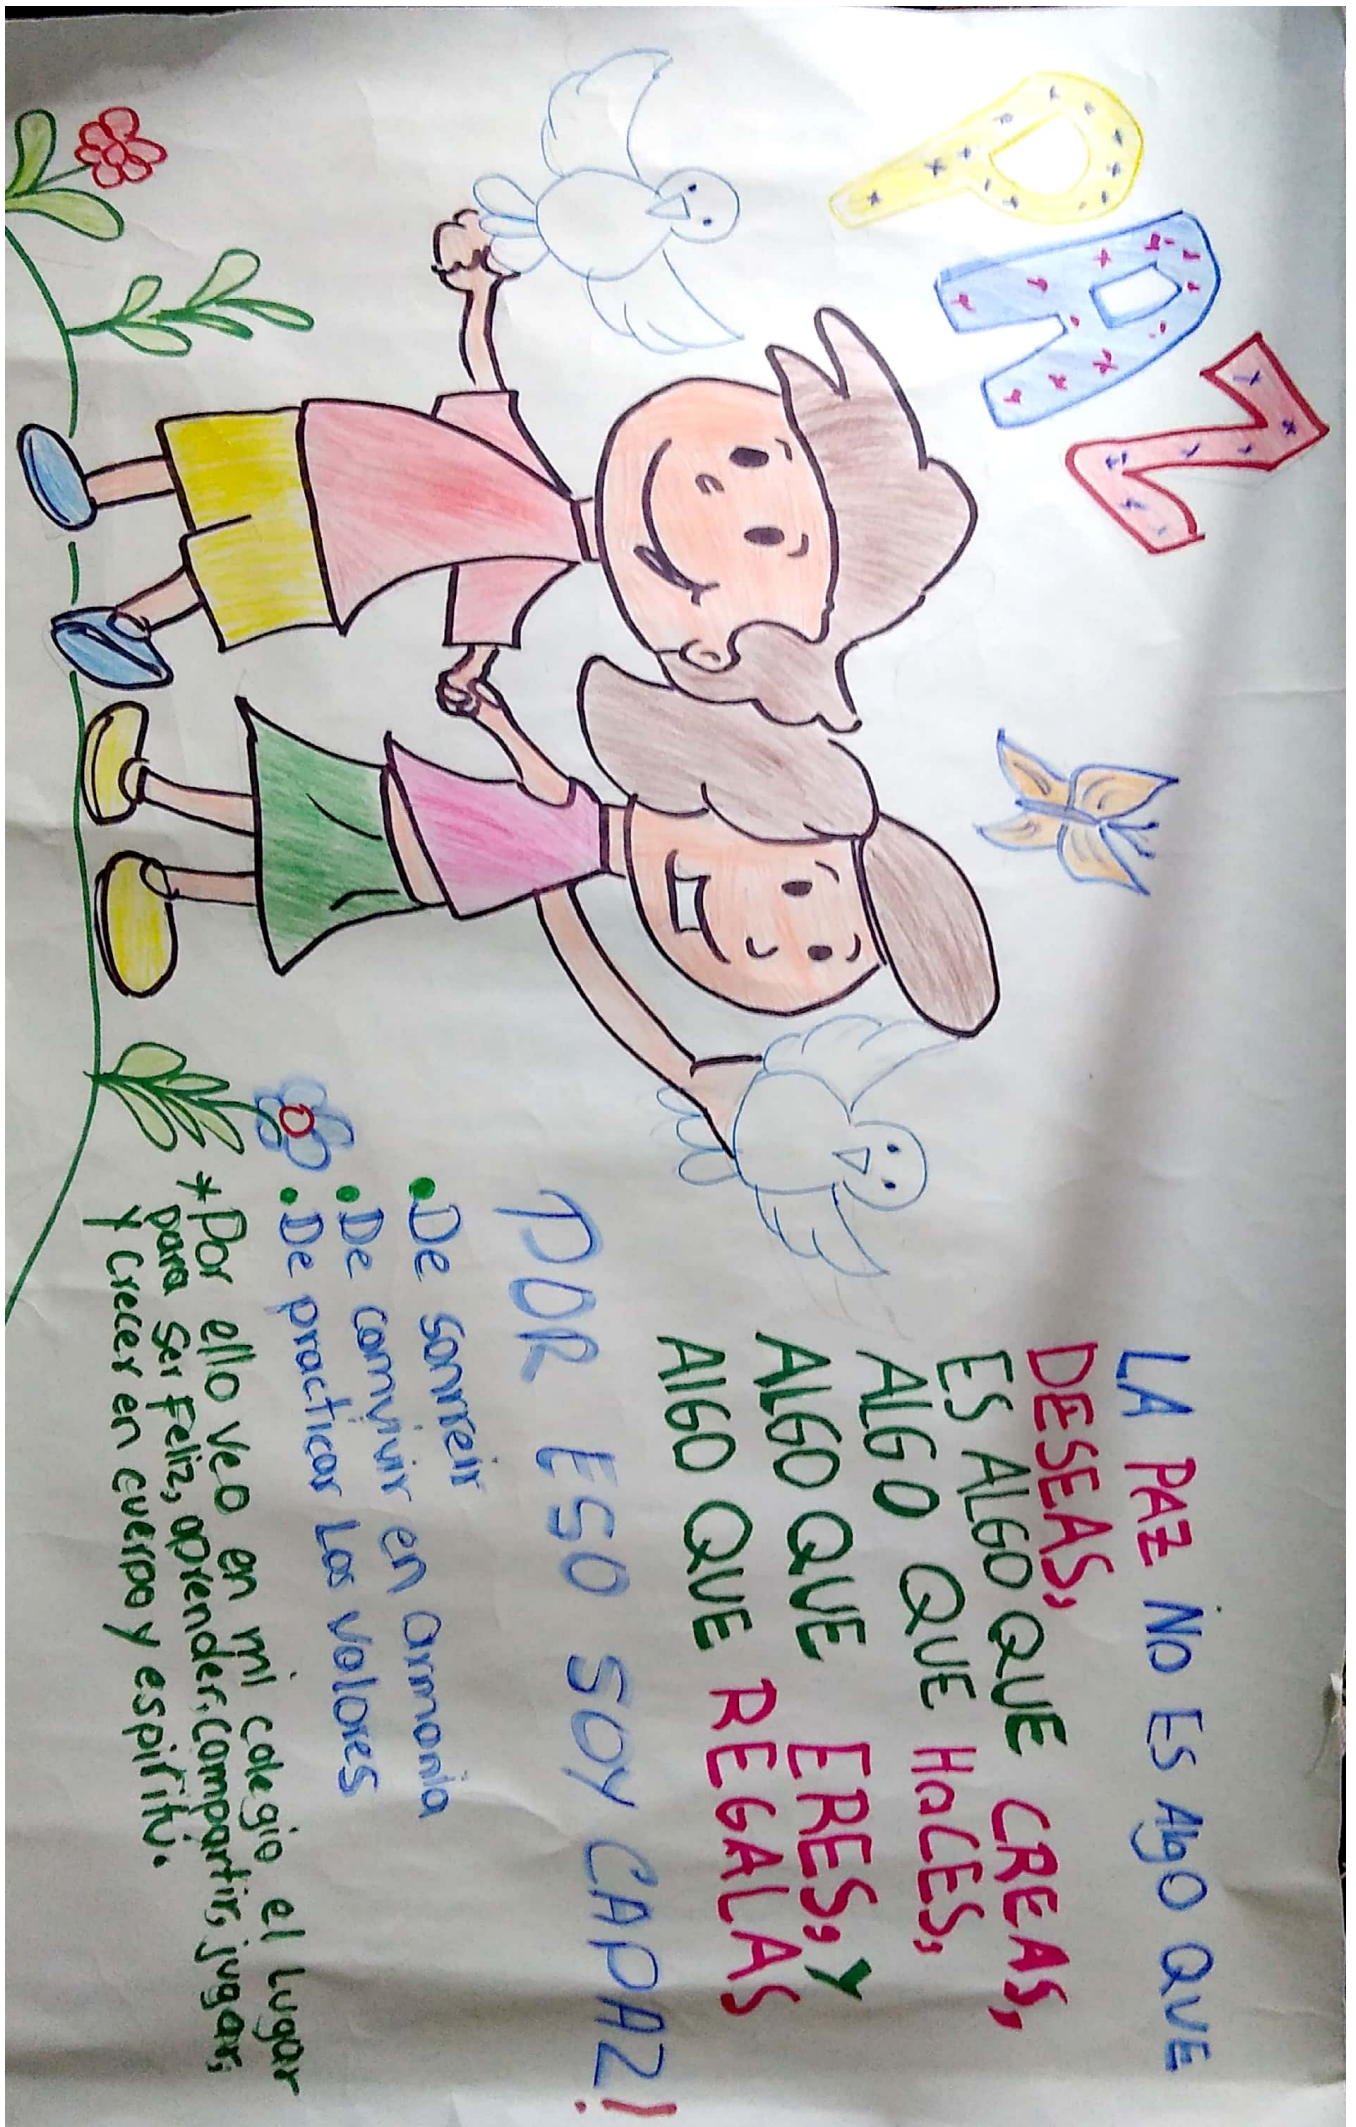 PAZ
LA PAZ NO ES AlgO QUE
DESEAS,
ES ALGO QUE CREAS,
ALGO QUE HaCES,
ALGO QUE ERES, Y
AlGO QUE REGALAS
POR ESO SOY CAPAZ!
• De sonreir
• De convivir en armonia
• De practicar Los valores
* Por ello veo en mi colegio el Lugar
para Ser feliz, aprender, Compartir, jugar,
Y Crecer en cuerpo y espiritu.